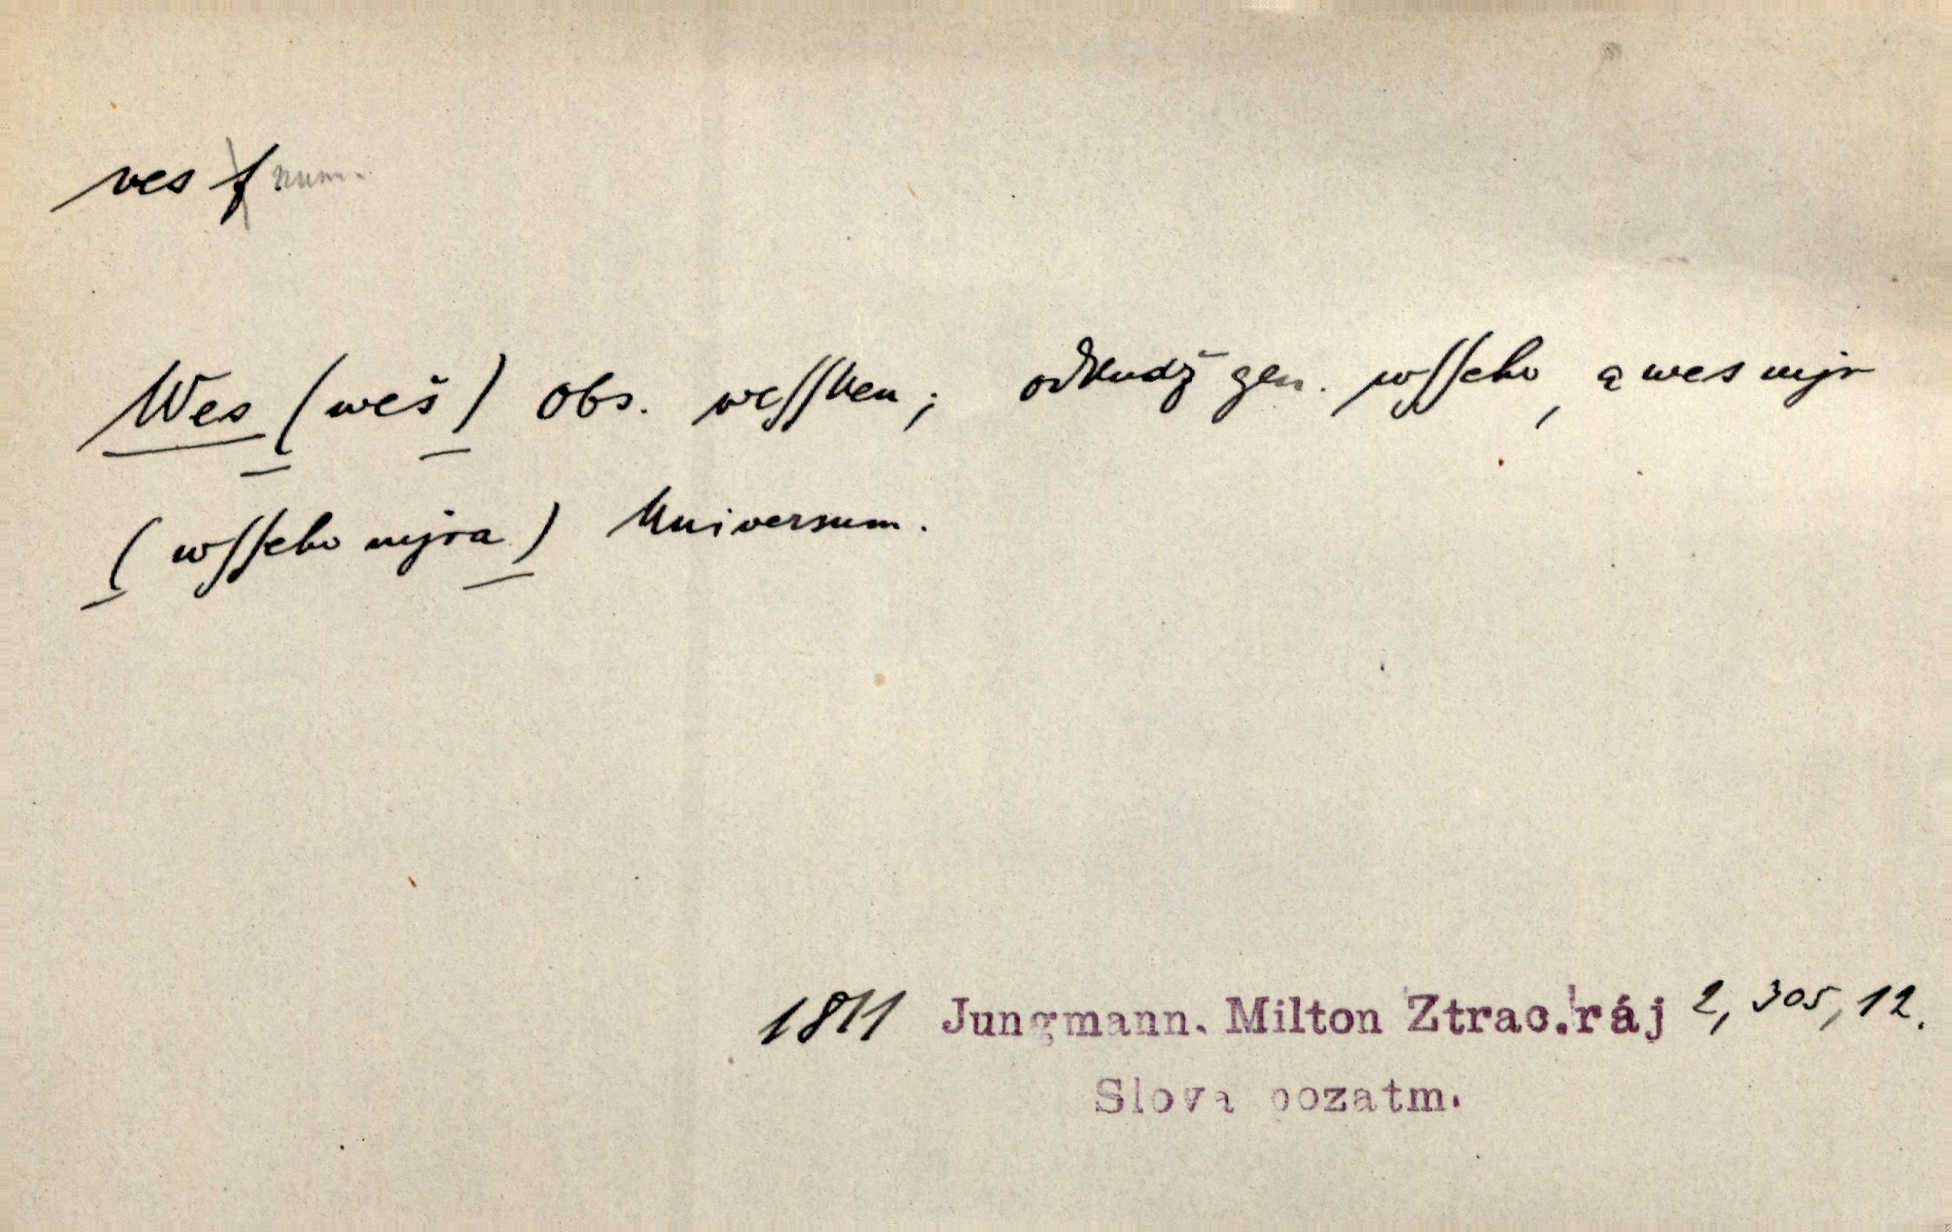 ves f num.
Wes (weš) obs. wešſſken; odkudž gen. wſſeho, a wes mjr
(wſſeho mjra) Universum.
1811 Jungmann. Milton Ztrac. ráj 2, 305, 12.
Slova pozatm.